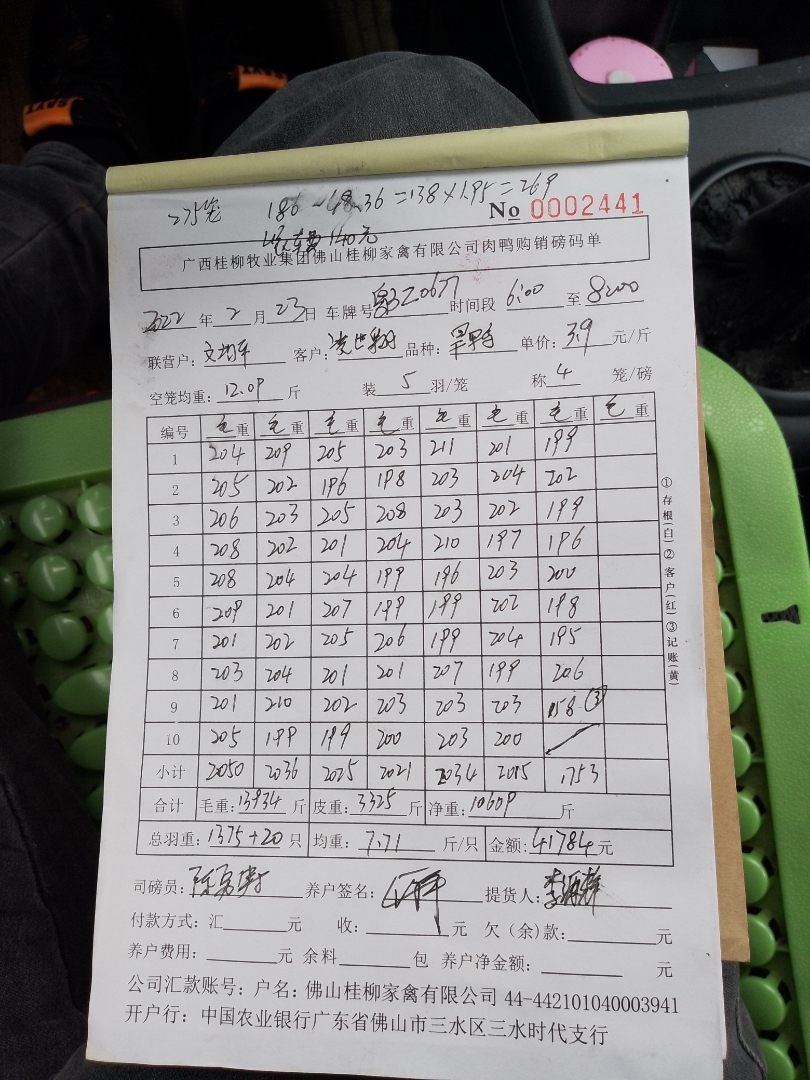 275笼 186 - 48.36 = 138 × 1.95 = 269
No 0002441
140元
广西桂柳牧业集团佛山桂柳家禽有限公司肉鸭购销磅码单
2022 年 2 月 23 日 车牌号 时间段 6:00 至 8:00
联营户: 客户: 品种: 单价: 3.9 元/斤
空笼均重: 12.09 斤 装 5 羽/笼 称 4 笼/磅
编号 毛重 毛重 毛重 毛重 毛重 毛重 毛重 毛重
1 204 209 205 203 211 201 199
2 205 202 196 198 203 204 202
3 206 203 205 208 203 202 199
4 208 202 201 204 210 197 196
5 208 204 204 199 196 203 200
6 209 201 207 199 199 202 198
7 201 202 205 206 199 204 195
8 203 204 201 201 207 199 206
9 201 210 202 203 203 203 158 ③
10 205 199 199 200 203 200
小计 2050 2036 2025 2021 2034 2015 1753
合计 毛重: 13934 斤 皮重: 3325 斤 净重: 10609 斤
总羽重: 1375+20 只 均重: 7.71 斤/只 金额: 41784 元
司磅员: 养户签名: 提货人:
付款方式: 汇 元 收: 元 欠(余)款: 元
养户费用: 元 余料 包 养户净金额: 元
公司汇款账号: 户名: 佛山桂柳家禽有限公司 44-442101040003941
开户行: 中国农业银行广东省佛山市三水区三水时代支行
①存根(白)②客户(红)③记账(黄)